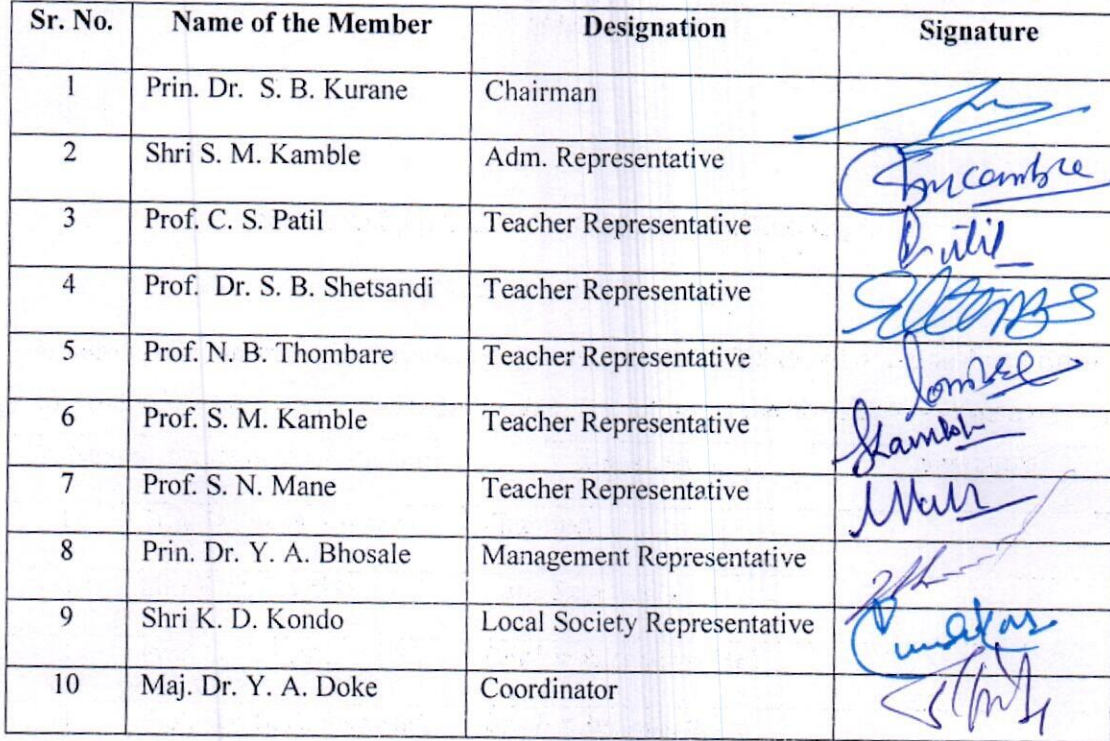 Sr. No. Name of the Member Designation Signature
1 Prin. Dr. S. B. Kurane Chairman
2 Shri S. M. Kamble Adm. Representative
3 Prof. C. S. Patil Teacher Representative Patil
4 Prof. Dr. S. B. Shetsandi Teacher Representative
5 Prof. N. B. Thombare Teacher Representative
6 Prof. S. M. Kamble Teacher Representative
7 Prof. S. N. Mane Teacher Representative
8 Prin. Dr. Y. A. Bhosale Management Representative
9 Shri K. D. Kondo Local Society Representative
10 Maj. Dr. Y. A. Doke Coordinator